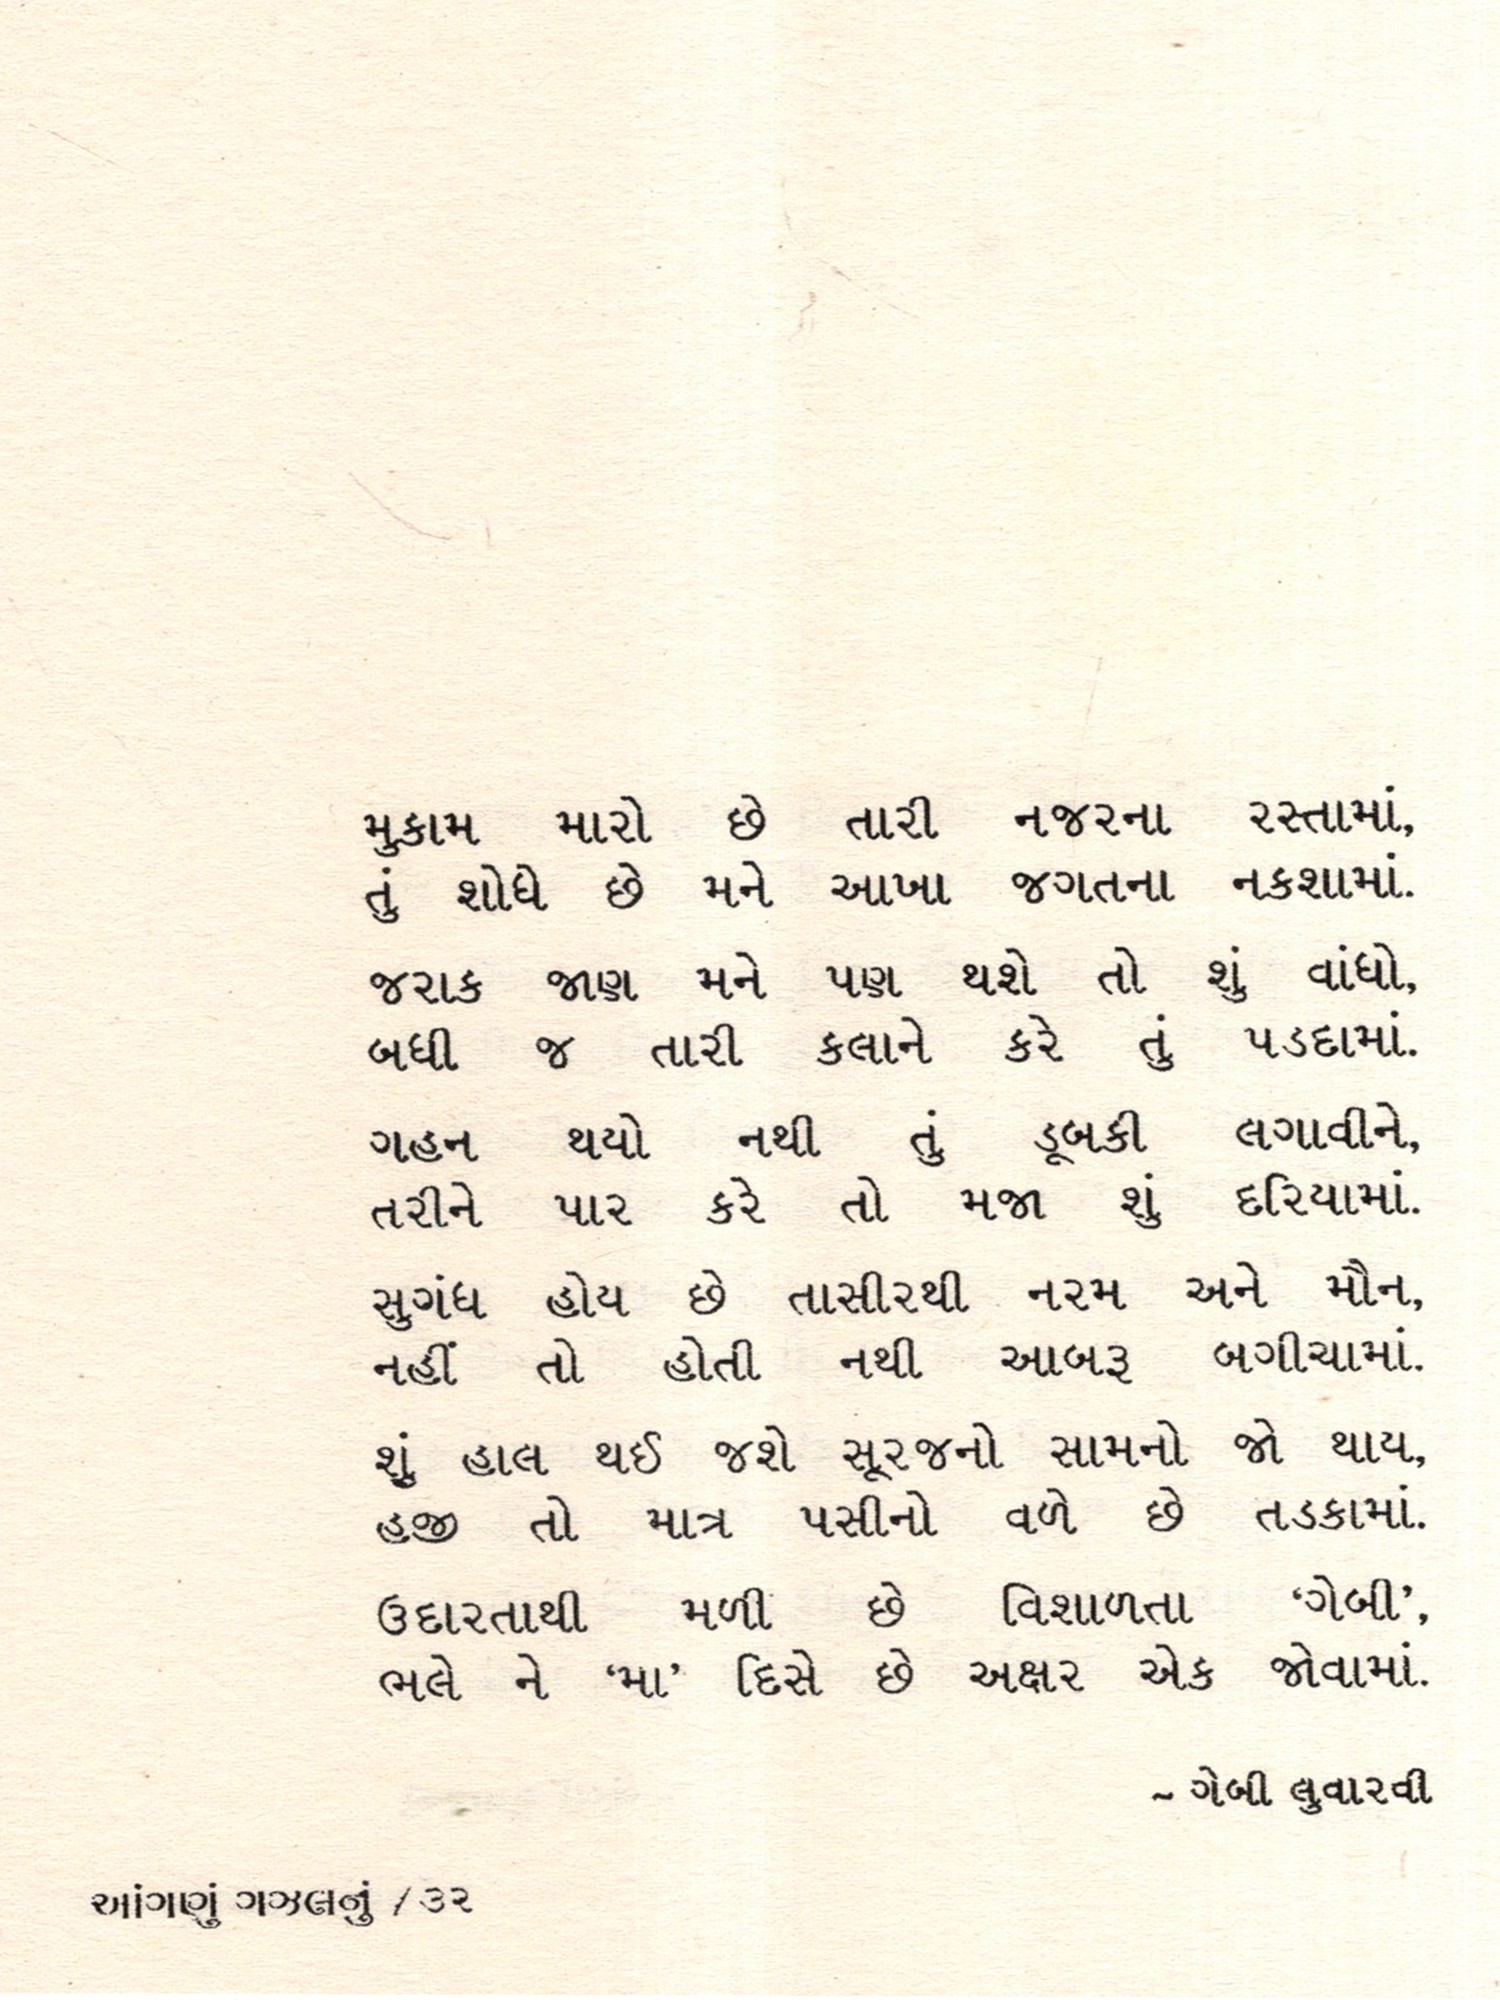 મુકામ મારો છે તારી નજરના રસ્તામાં,
તું શોધે છે મને આખા જગતના નકશામાં.
જરાક જાણ મને પણ થશે તો શું વાંધો,
બધી જ તારી કલાને કરે તું પડદામાં.
ગહન થયો નથી તું ડૂબકી લગાવીને,
તરીને પાર કરે તો મજા શું દરિયામાં.
સુગંધ હોય છે તાસીરથી નરમ અને મૌન,
નહીં તો હોતી નથી આબરૂ બગીચામાં.
શું હાલ થઈ જશે સૂરજનો સામનો જો થાય,
હજી તો માત્ર પસીનો વળે છે તડકામાં.
ઉદારતાથી મળી છે વિશાળતા ‘ગેબી’,
ભલે ને ‘મા’ દિસે છે અક્ષર એક જોવામાં.
~ ગેબી લુવારવી
આંગણું ગઝલનું / ૩૨